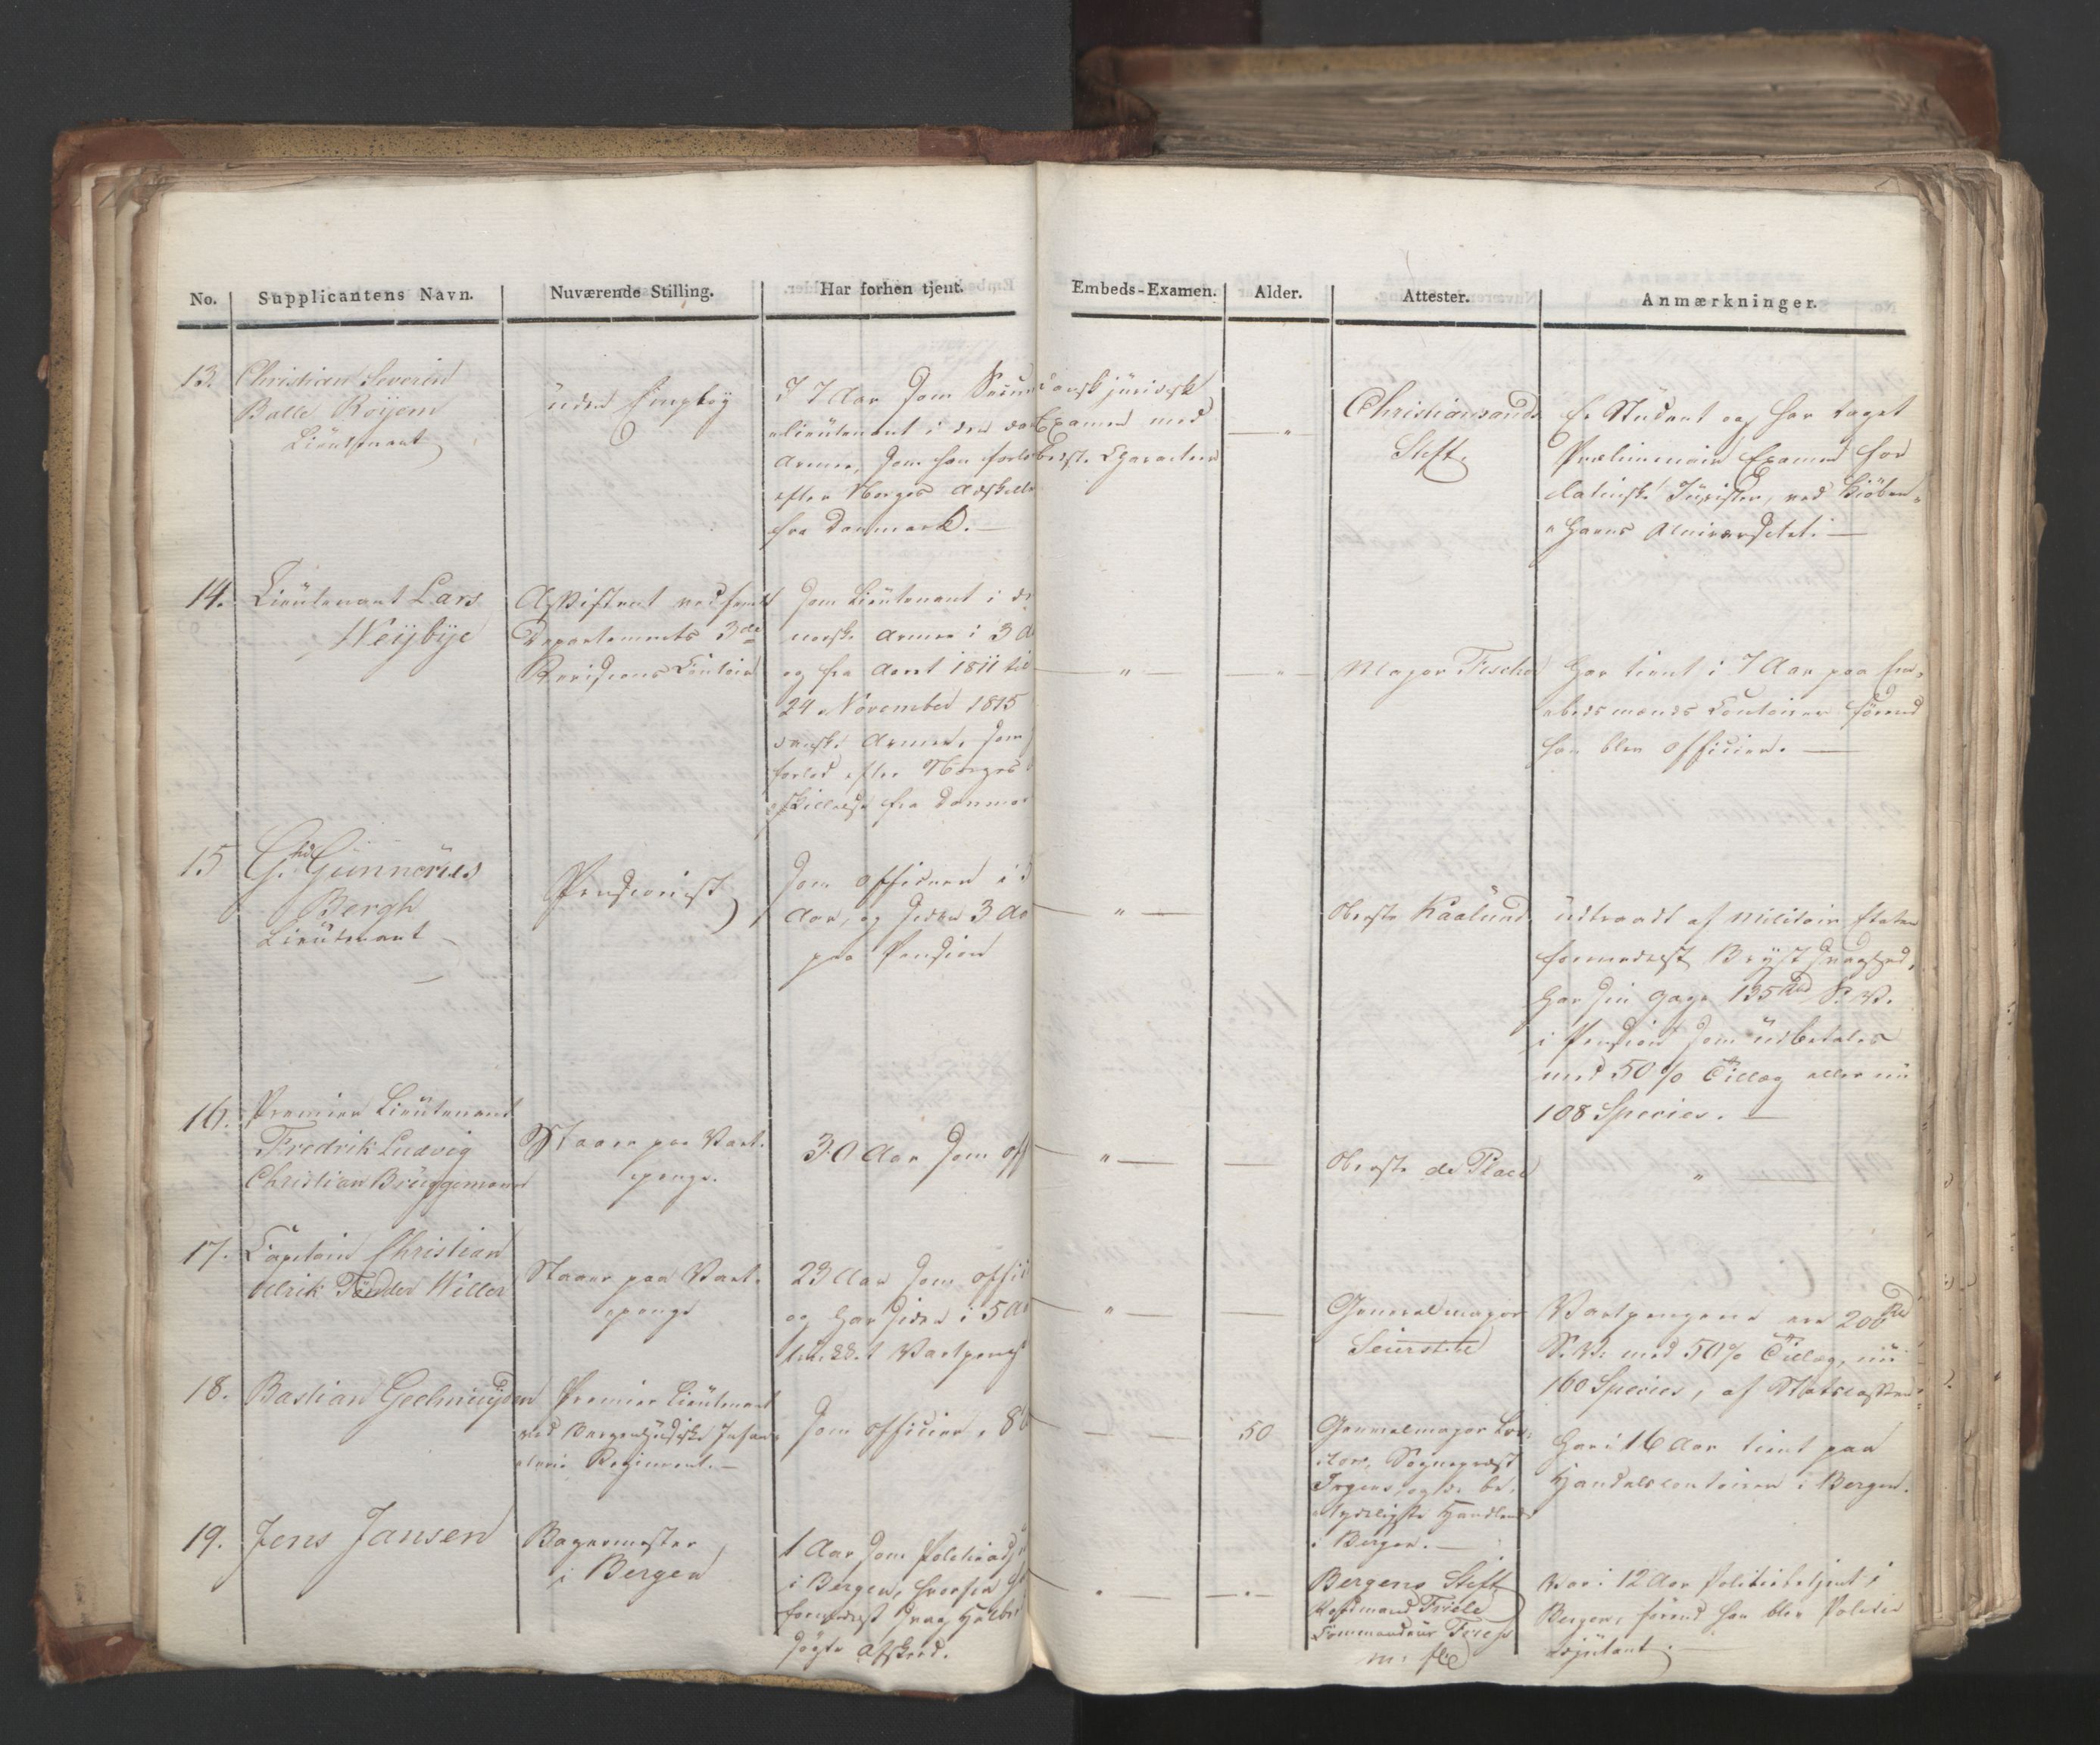 No. Supplicantens Navn. Nuværende Stilling. Har forhen tjent. Embeds-Examen. Alder. Attester. Anmærkninger.
13. Christian Severin
Balle Röyem
Lieutenant
uden
I 7 Aar som
Lieutenant i den
Armee, som han
efter Norges Adskille
fra Danmark. —
Dansk juridisk
Examen med
beste Character
— " —
Christiansands
Stift.
Er Student og har taget
Præliminair Examen for
latinske Jurister, ved Kiöben-
havns Universitet. —
14. Lieutenant Lars
Weÿbÿe
Assistent ved
Departements 3de
Revisions Contoir
som Lieutenant i
norske Armee i 3
og fra Aaret 1811 til
24 November 1815
danske Armee, som
forlod efter Norges
skillelse fra Danmar
— " —
— " —
Major
Har tient i 7 Aar paa Em-
bedsmænds Contoirer förend
han blev Officier. —
15 G. Gunnerus
Bergh
Lieutenant
Pensionist
som Officier i
Aar, og siden 3 Aa
paa Pension
— " —
Oberste Kaalund
Udtraadt af Militair Etaten
formedelst Brÿstsvaghed,
har sin Gage 135 Rd S. V.
i Pension som udbetales
med 50 % Tillæg eller nu
108 Species. —
16. Premier Lieutenant
Fredrik Ludvig
Christian Brüggemann
Staaer paa Vart-
penge.
30 Aar som Off
— " —
—
Oberste de Place
"
17. Capitain Christian
Ulrik Tönder Willer
Staaer paa Vart-
penge
23 Aar som Offi
og har siden i 5 Aa
Vartpenge
— " —
—
Generalmajor
Seierstedt
Vartpengene ere 200 Rd
S. V. med 50 % Tillæg, nu
160 Species, af Statscassen
18. Bastian Geelmuÿden
Premier Lieutenant
ved Bergenhusiske Infan-
terie Regiment. —
som Officier, 8
— —
50
Generalmajor
Sognepræst
Irgens, og de be-
tydeligste Handlende
i Bergen. —
Har i 16 Aar tient paa
Handelscontoirer i Bergen.
19. Jens Jansen
Bagermester
i Bergen
1 Aar som Politie
i Bergen, hvorfra
formedelst svag
søgte Afskeed.
— " —
— " —
Bergens Stift
Kiøbmand Friele
Commandeur
m: fl:
Var i 12 Aar Politiebetjent i
Bergen, förend han blev Politie
Adjutant. —